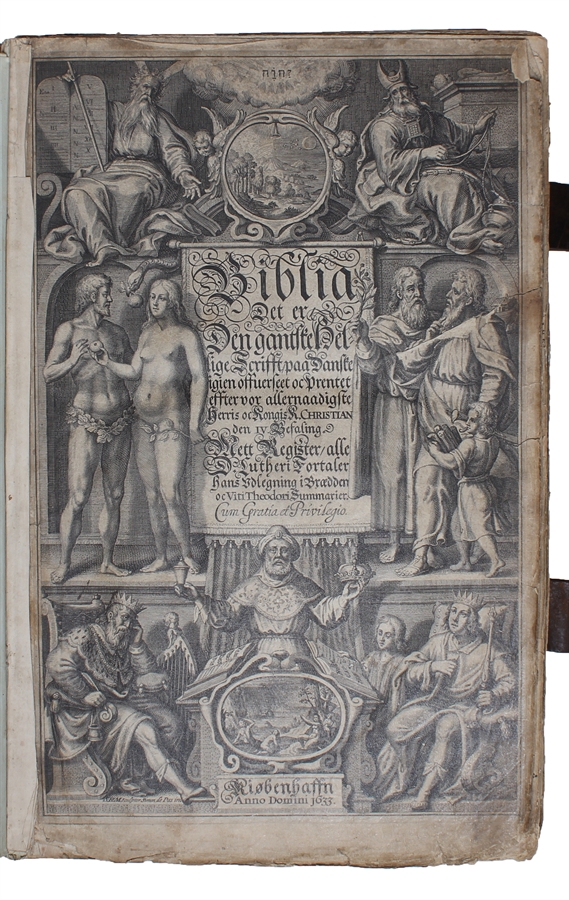 יהוה
Biblia
Det er
Den gantske Hel-
lige Scrifft/paa Danske
igien offuerseet oc Prentet
effter vor allernaadigste
Herris oc Kongis K. CHRISTIAN
den IV Befaling.
Mett Register/alle
D. Lutheri Fortaler
Hans Vdlegning i Brædden
oc Viti Theodori Summarier.
Cum Gratia et Privilegio.
Kiøbenhaffn
Anno Domini 1633.